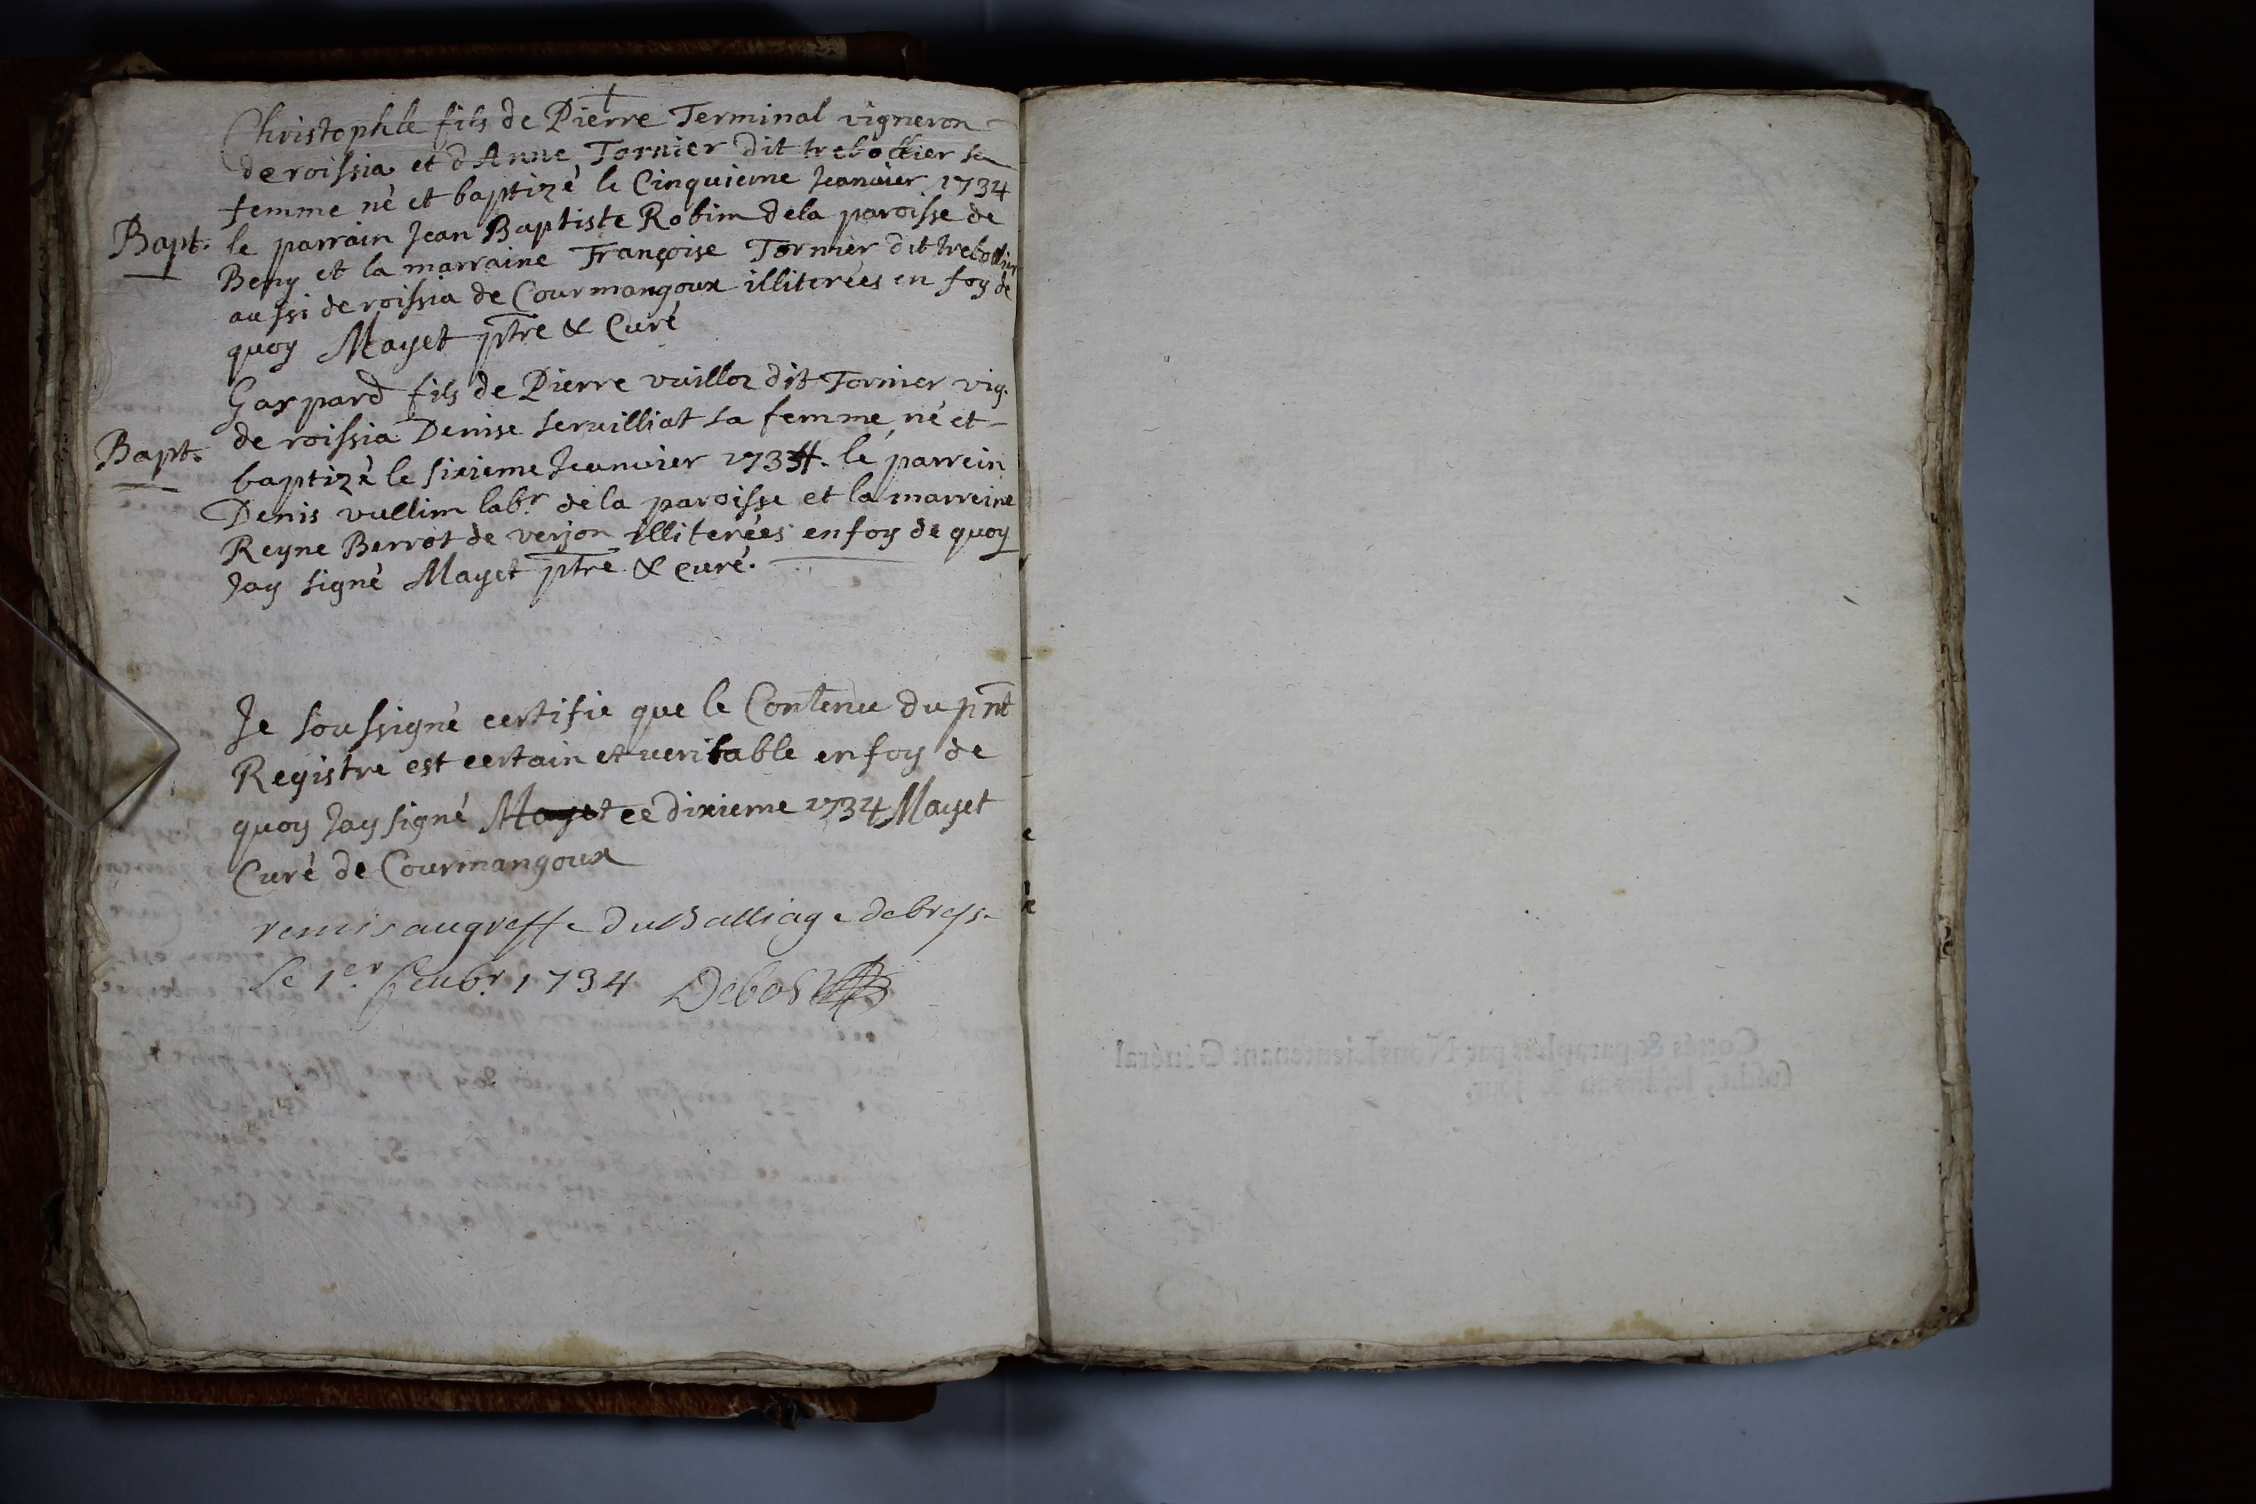 Christophle fils de Pierre Terminal vigneron
de roissia et d Anne Tornier dit trebollier sa
femme né et baptizé le Cinquieme Jeanvier 1734
Bapt. le parrain Jean Baptiste Robim dela paroisse de
Beny et la marraine Françoise Tornier dit trebollier
aussi de roissia de Courmangoux illiterées en foy de
quoy Mayet ptre & Curé
Gaspard fils de Pierre vuilloz dit Tornier vig.
de roissia Denise servilliat sa femme né et
Bapt. baptizé le sixieme Jeanvier 1734. le parrein
Denis vullim labr. de la paroisse et la marreine
Reyne Berrot de verjon illiterées en foy de quoy
Jay signé Mayet ptre & curé.
Je soussigné certifie que le Contenu du pnt
Registre est certain et veritable en foy de
quoy Jay signé Mayet ce dixieme 1734 Mayet
Curé de Courmangoux
remis au greffe Du Balliage de bresse
le 1er. 1734
Cottés & paraphés par Nous Lieutenant Général